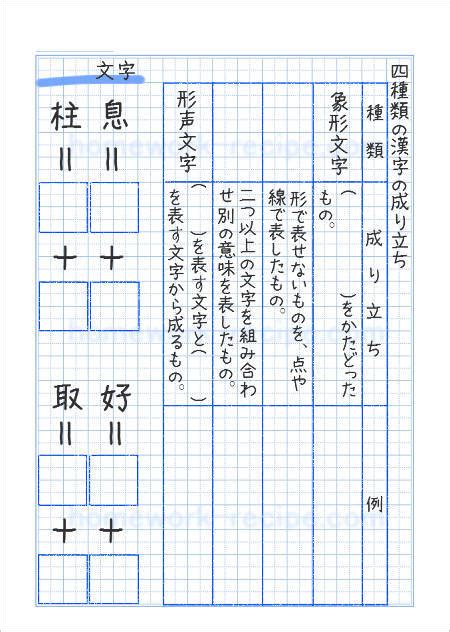 四種類の漢字の成り立ち
種類
成り立ち
例
象形文字
(　　　)をかたどった
もの。
形で表せないものを、点や
線で表したもの。
二つ以上の文字を組み合わ
せ別の意味を表したもの。
形声文字
(　　　)を表す文字と(　　　)
を表す文字から成るもの。
文字
息=□+□
好=□+□
柱=□+□
取=□+□
homework-recipe.com
homework-recipe.com
homework-recipe.com